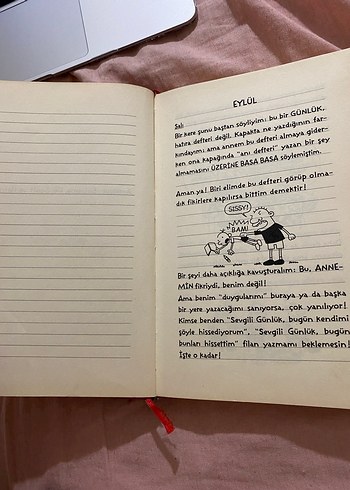 EYLÜL
Salı
Bir kere şunu baştan söyliyim: bu bir GÜNLÜK,
hatıra defteri değil. Kapakta ne yazdığının far-
kındayım; ama annem bu defteri almaya gider-
ken ona kapağında "anı defteri" yazan bir şey
almamasını ÜZERİNE BASA BASA söylemiştim.
Aman ya! Biri elimde bu defteri görüp olma-
dık fikirlere kapılırsa bittim demektir!
SISSY!
BAM!
Bir şeyi daha açıklığa kavuşturalım: Bu, ANNE-
MİN fikriydi, benim değil!
Ama benim "duygularımı" buraya ya da başka
bir yere yazacağımı sanıyorsa, çok yanılıyor!
Kimse benden "Sevgili Günlük, bugün kendimi
şöyle hissediyorum", "Sevgili Günlük, bugün
bunları hissettim" filan yazmamı beklemesin!
İşte o kadar!